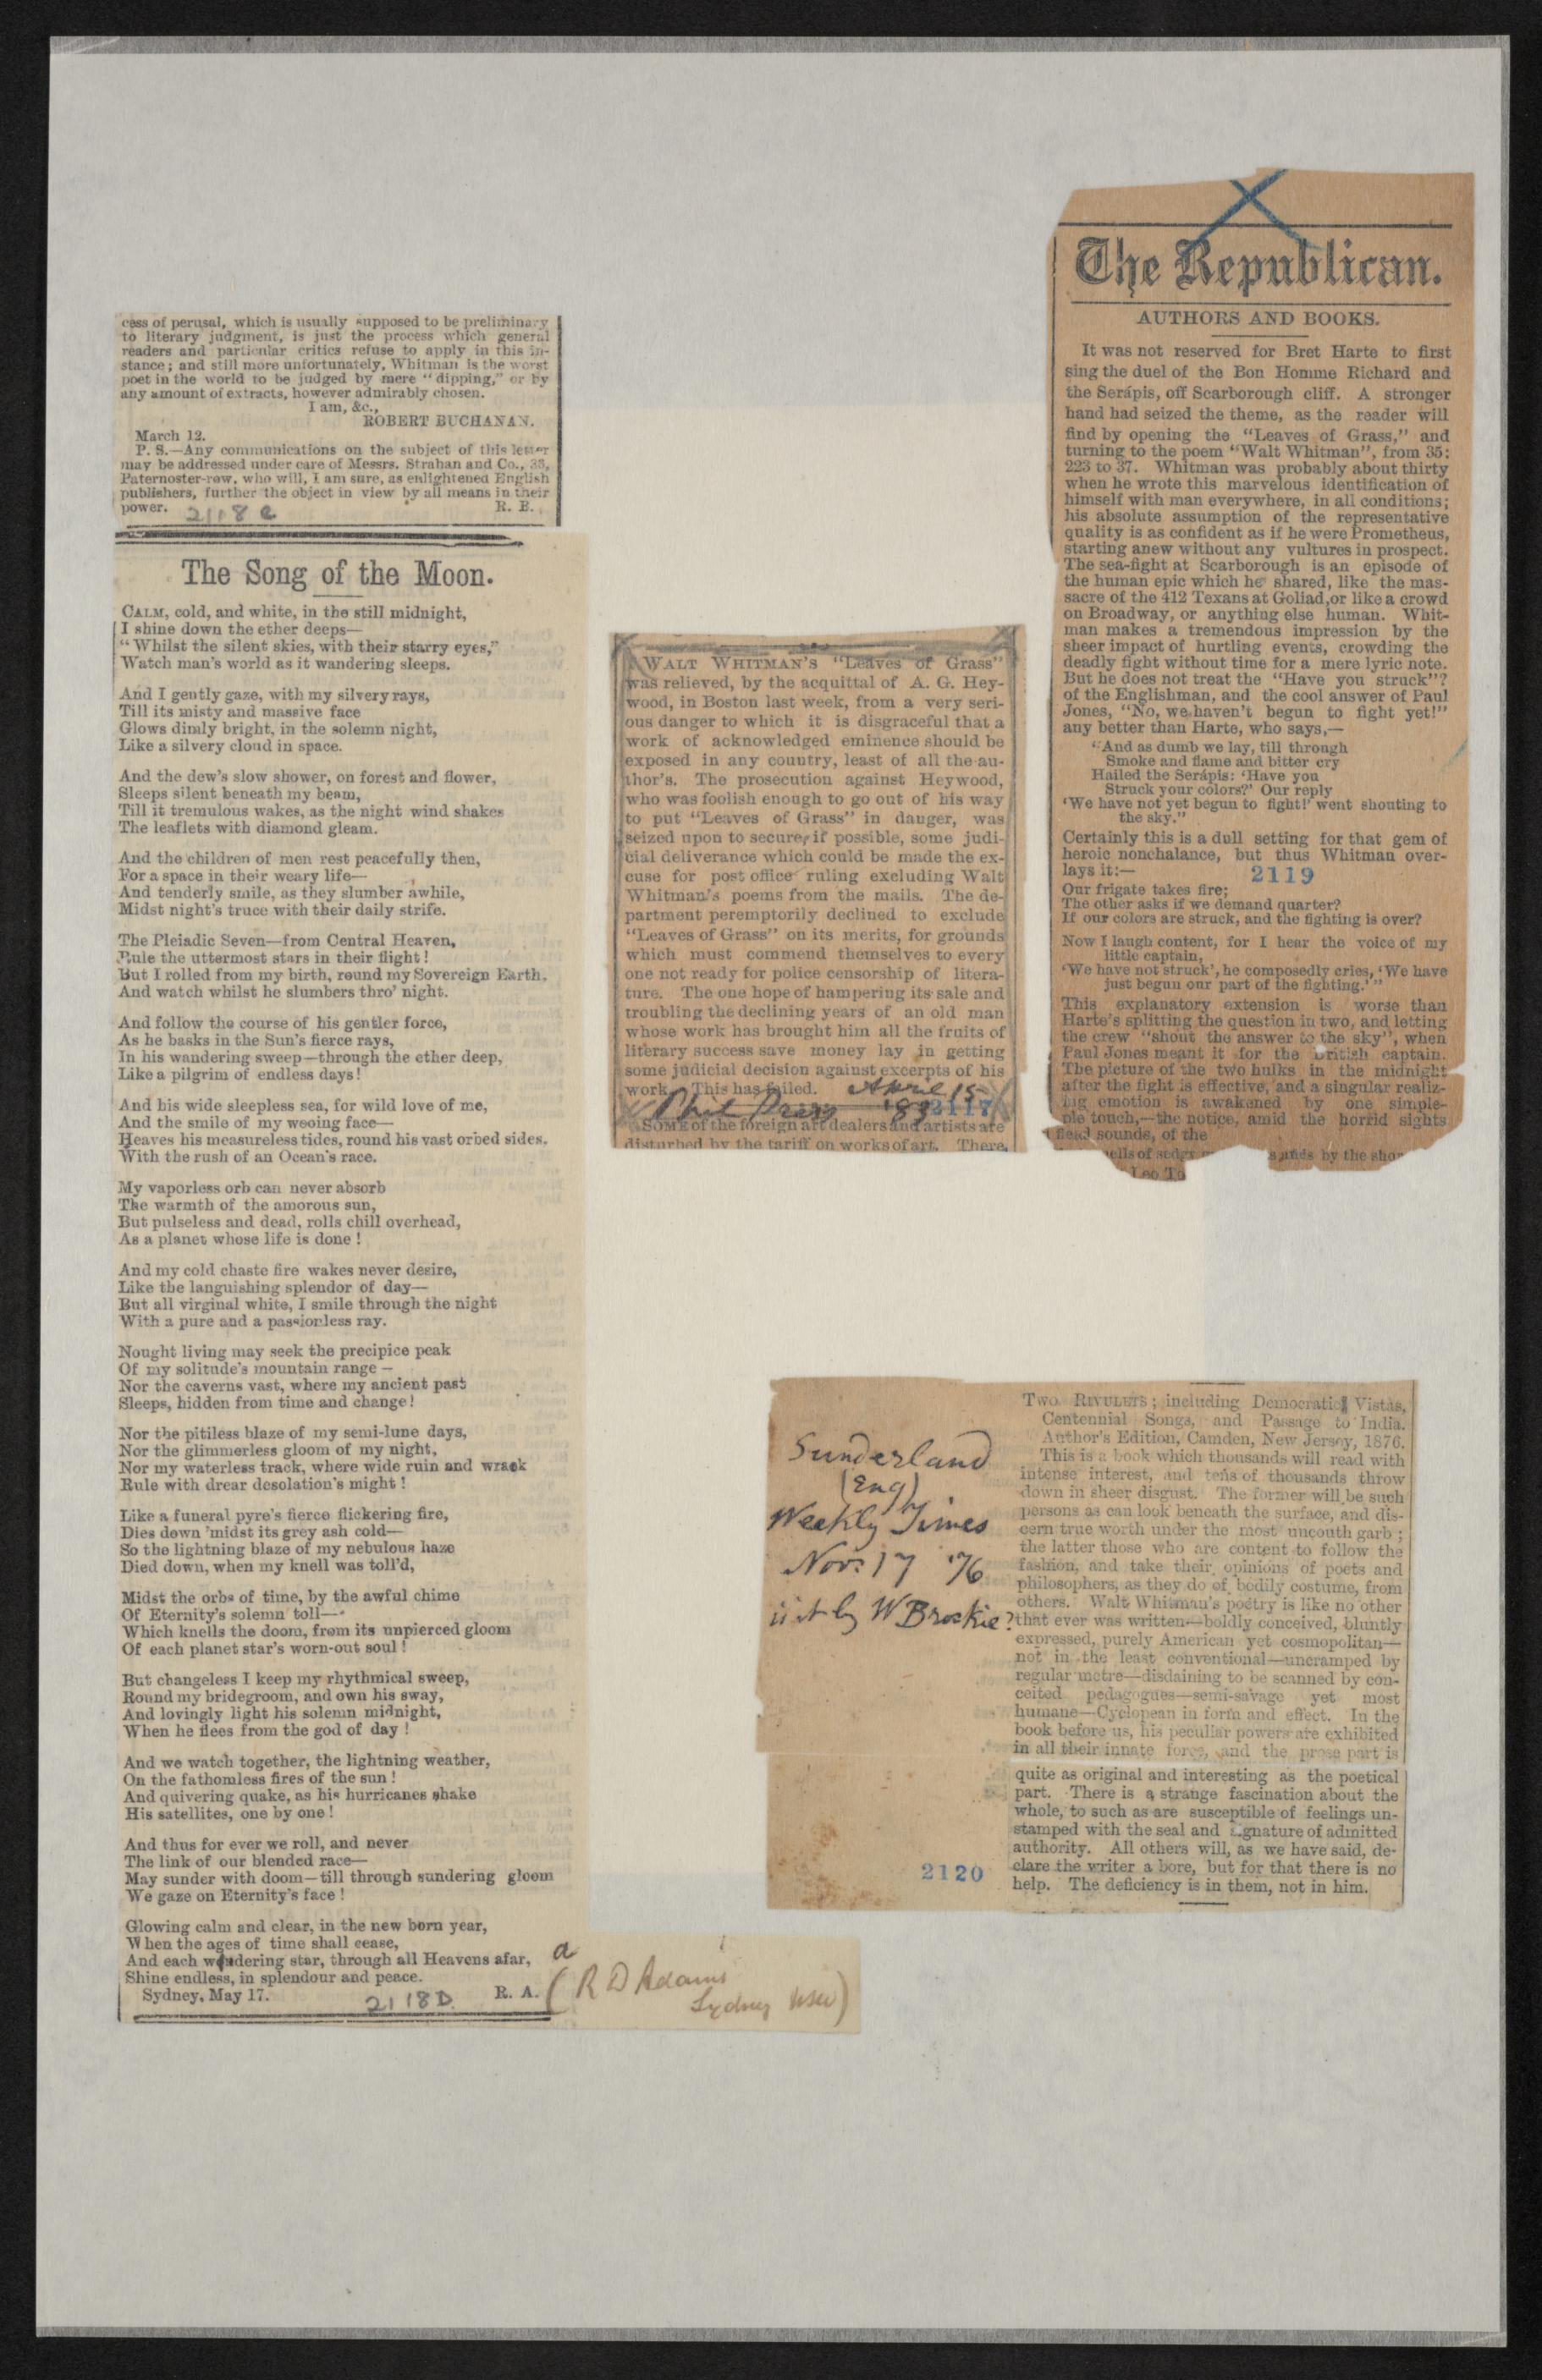 cess of perusal, which is usually supposed to be preliminary
to literary judgment, is just the process which general
readers and particular critics refuse to apply in this in-
stance; and still more unfortunately, Whitman is the worst
poet in the world to be judged by mere "dipping," or by
any amount of extracts, however admirably chosen.
I am, &c.,
ROBERT BUCHANAN.
March 12.
P. S.—Any communications on the subject of this letter
may be addressed under care of Messrs. Strahan and Co., 35,
Paternoster-row, who will, I am sure, as enlightened English
publishers, further the object in view by all means in their
power. R. B.
2118 C
The Song of the Moon.
CALM, cold, and white, in the still midnight,
I shine down the ether deeps—
"Whilst the silent skies, with their starry eyes,"
Watch man's world as it wandering sleeps.
And I gently gaze, with my silvery rays,
Till its misty and massive face
Glows dimly bright, in the solemn night,
Like a silvery cloud in space.
And the dew's slow shower, on forest and flower,
Sleeps silent beneath my beam,
Till it tremulous wakes, as the night wind shakes
The leaflets with diamond gleam.
And the children of men rest peacefully then,
For a space in their weary life—
And tenderly smile, as they slumber awhile,
Midst night's truce with their daily strife.
The Pleiadic Seven—from Central Heaven,
Rule the uttermost stars in their flight!
But I rolled from my birth, round my Sovereign Earth,
And watch whilst he slumbers thro' night.
And follow the course of his gentler force,
As he basks in the Sun's fierce rays,
In his wandering sweep—through the ether deep,
Like a pilgrim of endless days!
And his wide sleepless sea, for wild love of me,
And the smile of my wooing face—
Heaves his measureless tides, round his vast orbed sides,
With the rush of an Ocean's race.
My vaporless orb can never absorb
The warmth of the amorous sun,
But pulseless and dead, rolls chill overhead,
As a planet whose life is done!
And my cold chaste fire wakes never desire,
Like the languishing splendor of day—
But all virginal white, I smile through the night
With a pure and a passionless ray.
Nought living may seek the precipice peak
Of my solitude's mountain range—
Nor the caverns vast, where my ancient past
Sleeps, hidden from time and change!
Nor the pitiless blaze of my semi-lune days,
Nor the glimmerless gloom of my night,
Nor my waterless track, where wide ruin and wrack
Rule with drear desolation's might!
Like a funeral pyre's fierce flickering fire,
Dies down 'midst its grey ash cold—
So the lightning blaze of my nebulous haze
Died down, when my knell was toll'd,
Midst the orbs of time, by the awful chime
Of Eternity's solemn toll—
Which knells the doom, from its unpierced gloom
Of each planet star's worn-out soul!
But changeless I keep my rhythmical sweep,
Round my bridegroom, and own his sway,
And lovingly light his solemn midnight,
When he flees from the god of day!
And we watch together, the lightning weather,
On the fathomless fires of the sun!
And quivering quake, as his hurricanes shake
His satellites, one by one!
And thus for ever we roll, and never
The link of our blended race—
May sunder with doom—till through sundering gloom
We gaze on Eternity's face!
Glowing calm and clear, in the new born year,
When the ages of time shall cease,
And each wandering star, through all Heavens afar, a
Shine endless, in splendour and peace.
Sydney, May 17. R. A.
2118D
(R D Adams
Sydney NSW)
WALT WHITMAN'S "Leaves of Grass"
was relieved, by the acquittal of A. G. Hey-
wood, in Boston last week, from a very seri-
ous danger to which it is disgraceful that a
work of acknowledged eminence should be
exposed in any country, least of all the au-
thor's. The prosecution against Heywood,
who was foolish enough to go out of his way
to put "Leaves of Grass" in danger, was
seized upon to secure, if possible, some judi-
cial deliverance which could be made the ex-
cuse for post office ruling excluding Walt
Whitman's poems from the mails. The de-
partment peremptorily declined to exclude
"Leaves of Grass" on its merits, for grounds
which must commend themselves to every
one not ready for police censorship of litera-
ture. The one hope of hampering its sale and
troubling the declining years of an old man
whose work has brought him all the fruits of
literary success save money lay in getting
some judicial decision against excerpts of his
work. This has failed. April 15
Phil Press '83 2117
SOME of the foreign art dealers and artists are
disturbed by the tariff on works of art. There
The Republican.
AUTHORS AND BOOKS.
It was not reserved for Bret Harte to first
sing the duel of the Bon Homme Richard and
the Serápis, off Scarborough cliff. A stronger
hand had seized the theme, as the reader will
find by opening the "Leaves of Grass," and
turning to the poem "Walt Whitman", from 35:
223 to 37. Whitman was probably about thirty
when he wrote this marvelous identification of
himself with man everywhere, in all conditions;
his absolute assumption of the representative
quality is as confident as if he were Prometheus,
starting anew without any vultures in prospect.
The sea-fight at Scarborough is an episode of
the human epic which he shared, like the mas-
sacre of the 412 Texans at Goliad, or like a crowd
on Broadway, or anything else human. Whit-
man makes a tremendous impression by the
sheer impact of hurtling events, crowding the
deadly fight without time for a mere lyric note.
But he does not treat the "Have you struck"?
of the Englishman, and the cool answer of Paul
Jones, "No, we haven't begun to fight yet!"
any better than Harte, who says,—
"And as dumb we lay, till through
Smoke and flame and bitter cry
Hailed the Serápis: 'Have you
Struck your colors?' Our reply
'We have not yet begun to fight!' went shouting to
the sky."
Certainly this is a dull setting for that gem of
heroic nonchalance, but thus Whitman over-
lays it:— 2119
Our frigate takes fire;
The other asks if we demand quarter?
If our colors are struck, and the fighting is over?
Now I laugh content, for I hear the voice of my
little captain,
'We have not struck', he composedly cries, 'We have
just begun our part of the fighting.'"
This explanatory extension is worse than
Harte's splitting the question in two, and letting
the crew "shout the answer to the sky", when
Paul Jones meant it for the British captain.
The picture of the two hulks in the midnight
after the fight is effective, and a singular realiz-
ing emotion is awakened by one simple-
ple touch,—the notice, amid the horrid sights
sounds, of the
ells of sedgy by the
Leo
Sunderland
(Eng)
Weekly Times
Nov. 17 '76
by W Brockie?
2120
TWO RIVULETS; including Democratic Vistas,
Centennial Songs, and Passage to India.
Author's Edition, Camden, New Jersey, 1876.
This is a book which thousands will read with
intense interest, and tens of thousands throw
down in sheer disgust. The former will be such
persons as can look beneath the surface, and dis-
cern true worth under the most uncouth garb;
the latter those who are content to follow the
fashion, and take their opinions of poets and
philosophers, as they do of bodily costume, from
others. Walt Whitman's poetry is like no other
that ever was written—boldly conceived, bluntly
expressed, purely American yet cosmopolitan—
not in the least conventional—uncramped by
regular metre—disdaining to be scanned by con-
ceited pedagogues—semi-savage yet most
humane—Cyclopean in form and effect. In the
book before us, his peculiar powers are exhibited
in all their innate force, and the prose part is
quite as original and interesting as the poetical
part. There is a strange fascination about the
whole, to such as are susceptible of feelings un-
stamped with the seal and signature of admitted
authority. All others will, as we have said, de-
clare the writer a bore, but for that there is no
help. The deficiency is in them, not in him.